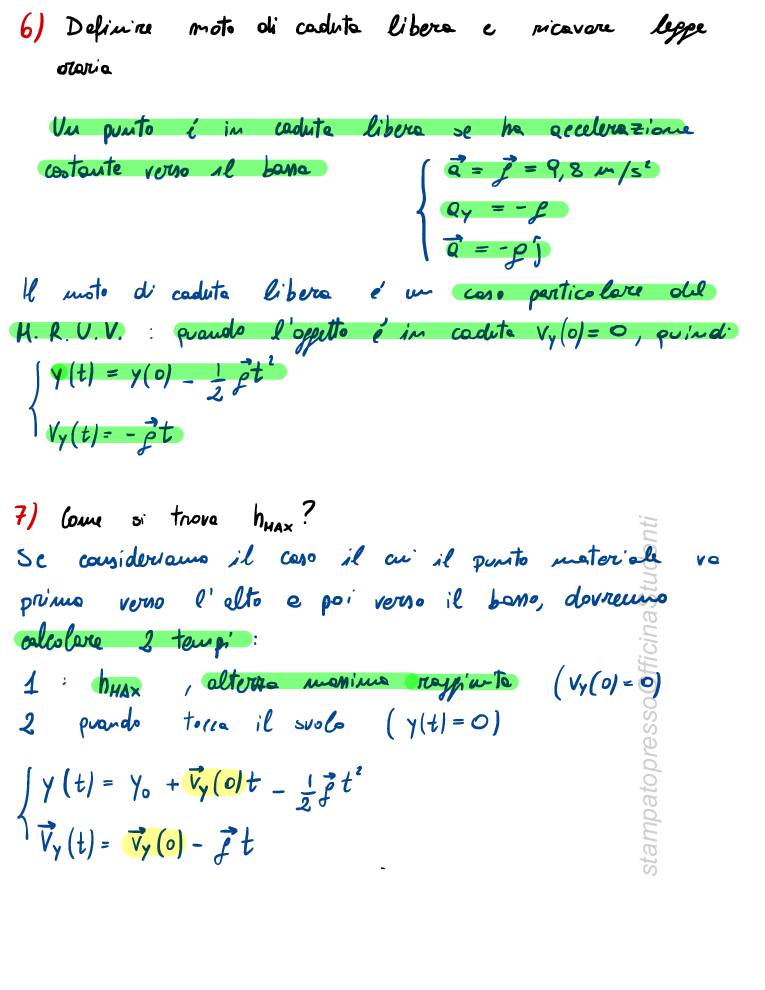 6) Definire moto di caduta libera e ricavare legge
oraria
Un punto é in caduta libera se ha accelerazione
costante verso il basso
a⃗ = g⃗ = 9,8 m/s²
ay = - g
a⃗ = -g j
Il moto di caduta libera é un caso particolare del
M.R.U.V. : quando l'oggetto é in caduta Vy(0)=0, quindi
y(t) = y(0) - 1/2 g⃗ t²
Vy(t) = - g⃗ t
7) Come si trova hMAX?
Se consideriamo il caso il cui il punto materiale va
primo verso l'alto e poi verso il basso, dovremmo
calcolare 2 tempi:
1 : hMAX , altezza massima raggiunta (Vy(0)=0)
2 quando tocca il suolo ( y(t)=0)
y(t) = y₀ + v⃗y(0)t - 1/2 g⃗ t²
V⃗y(t) = v⃗y(0) - g⃗ t
stampatopresso@fficinastudenti